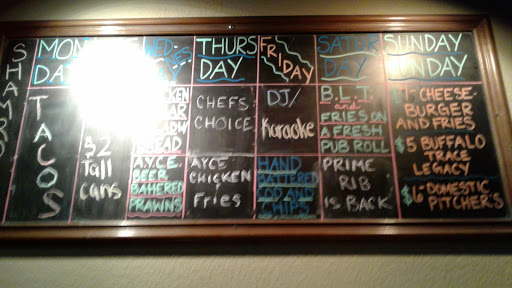 SHAMRO
MON
DAY
TACOS
$2
Tall
cans
WED
NES
AY
KEN
READ
AYCE
BEER
BAHERED
PRAWNS
THURS
DAY
CHEFS
CHOICE
AYCE
CHICKEN
Fries
FRI
DAY
DJ/
Karaoke
HAND
BATTERED
COD AND
CHIPS
SATUR
DAY
B.L.T.
and
FRIES ON
A FRESH
PUB ROLL
PRIME
RIB
IS BACK
SUNDAY
FUNDAY
$1- CHEESE-
BURGER
AND FRIES
$5 BUFFALO
TRACE
LEGACY
$6- DOMESTIC
PITCHER'S